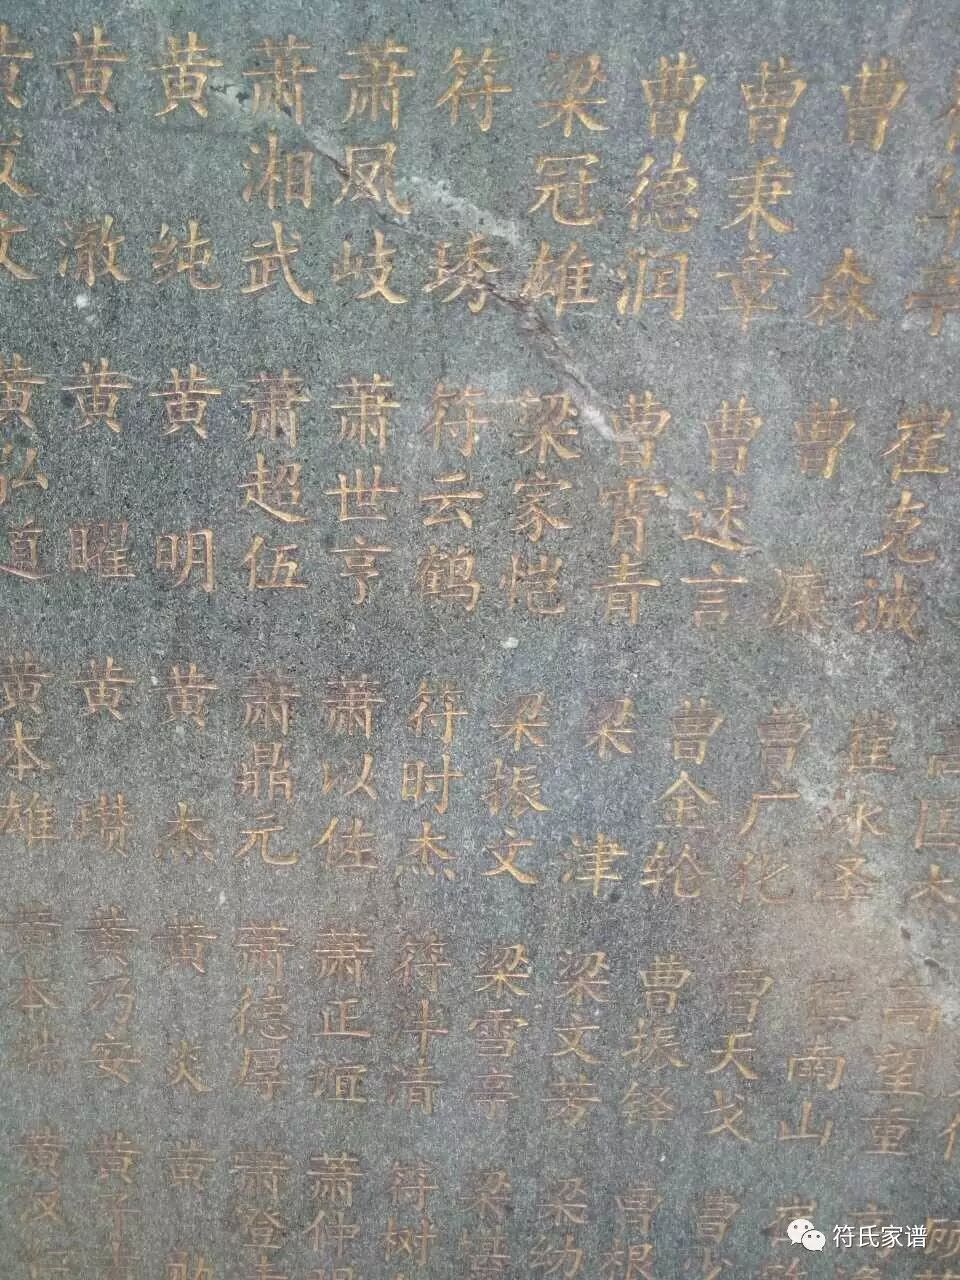 黄 黄 黄 萧湘武 萧凤岐 符琇 梁冠雄 曹德润 曹秉章 曹森
黄弘道 黄曜 黄明 萧超伍 萧世亨 符云鹤 梁家恺 曹霄青 曹达言 曹廉 崔克诚
黄本雄 黄瓒 黄杰 萧鼎元 萧以佐 符时杰 梁振文 梁津 曹全轮 曹广化 崔永圣
黄本 黄乃安 黄炎 萧德厚 萧正谊 符斗清 梁雪亭 梁文芳 曹振铎 曹天戈 南山 高望重
黄 黄 黄 萧登 萧仲明 符树 梁 梁幼 曹根 曹
符氏家谱